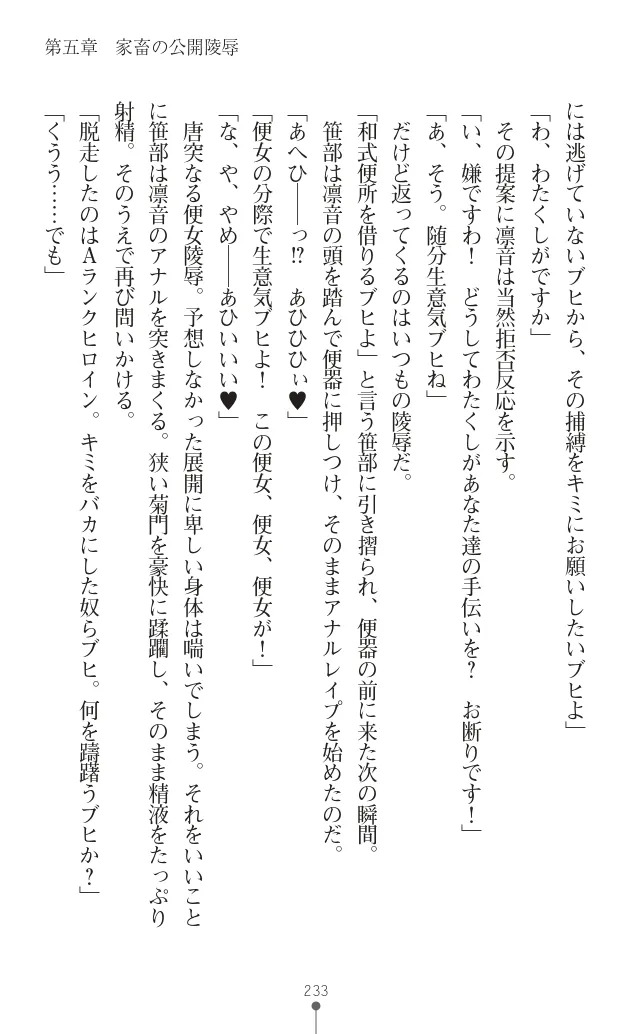 第五章　家畜の公開陵辱
には逃げていないブヒから、その捕縛をキミにお願いしたいブヒよ」
「わ、わたくしがですか」
その提案に凛音は当然拒否反応を示す。
「い、嫌ですわ！　どうしてわたくしがあなた達の手伝いを？　お断りです！」
「あ、そう。随分生意気ブヒね」
だけど返ってくるのはいつもの陵辱だ。
「和式便所を借りるブヒよ」と言う笹部に引き摺られ、便器の前に来た次の瞬間。
笹部は凛音の頭を踏んで便器に押しつけ、そのままアナルレイプを始めたのだ。
「あへひ――っ!?　あひひひぃ♥」
「便女の分際で生意気ブヒよ！　この便女、便女、便女が！」
「な、や、やめ――あひいいい♥」
唐突なる便女陵辱。予想しなかった展開に卑しい身体は喘いでしまう。それをいいこと
に笹部は凛音のアナルを突きまくる。狭い菊門を豪快に蹂躙し、そのまま精液をたっぷり
射精。そのうえで再び問いかける。
「脱走したのはAランクヒロイン。キミをバカにした奴らブヒ。何を躊躇うブヒか？」
「くうう……でも」
233